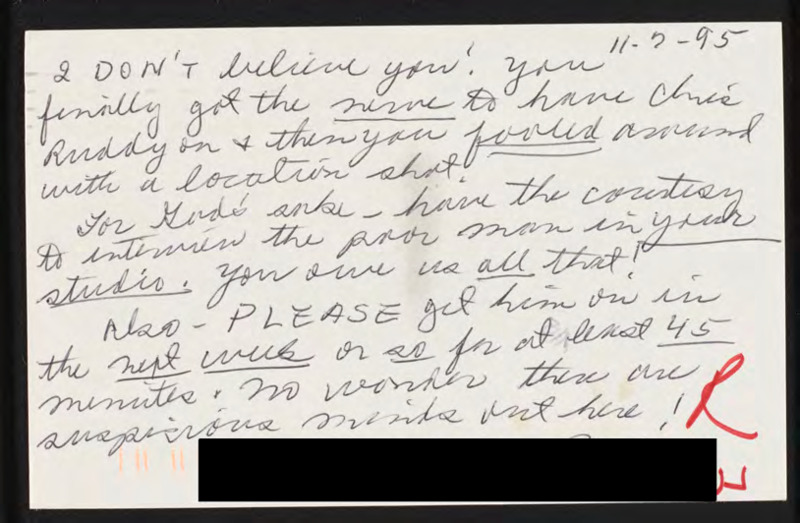 11-7-95
I DON'T believe you! You
finally got the nerve to have Chris
Ruddy on & then you fooled around
with a location shot.
For God's sake - have the courtesy
to interview the poor man in your
studio. You owe us all that!
Also - PLEASE get him on in
the next week or so for at least 45
minutes. No wonder there are
suspicious minds out here!
R